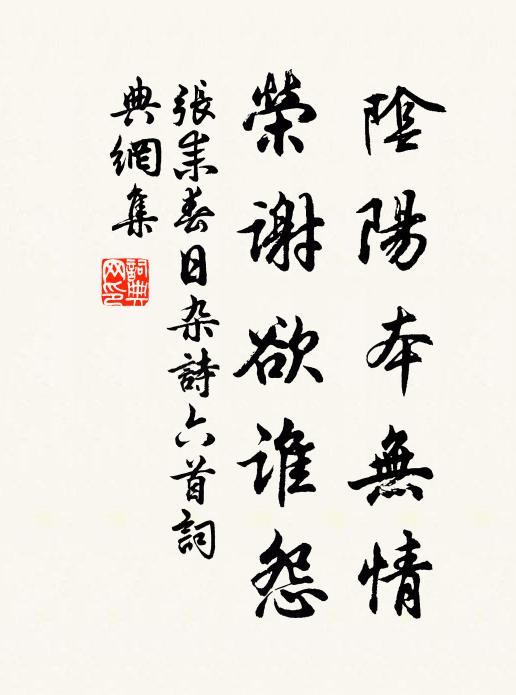 陰陽本無情
榮謝欲誰怨
張耒春日杂詩六首詞
典網集
詞典网印